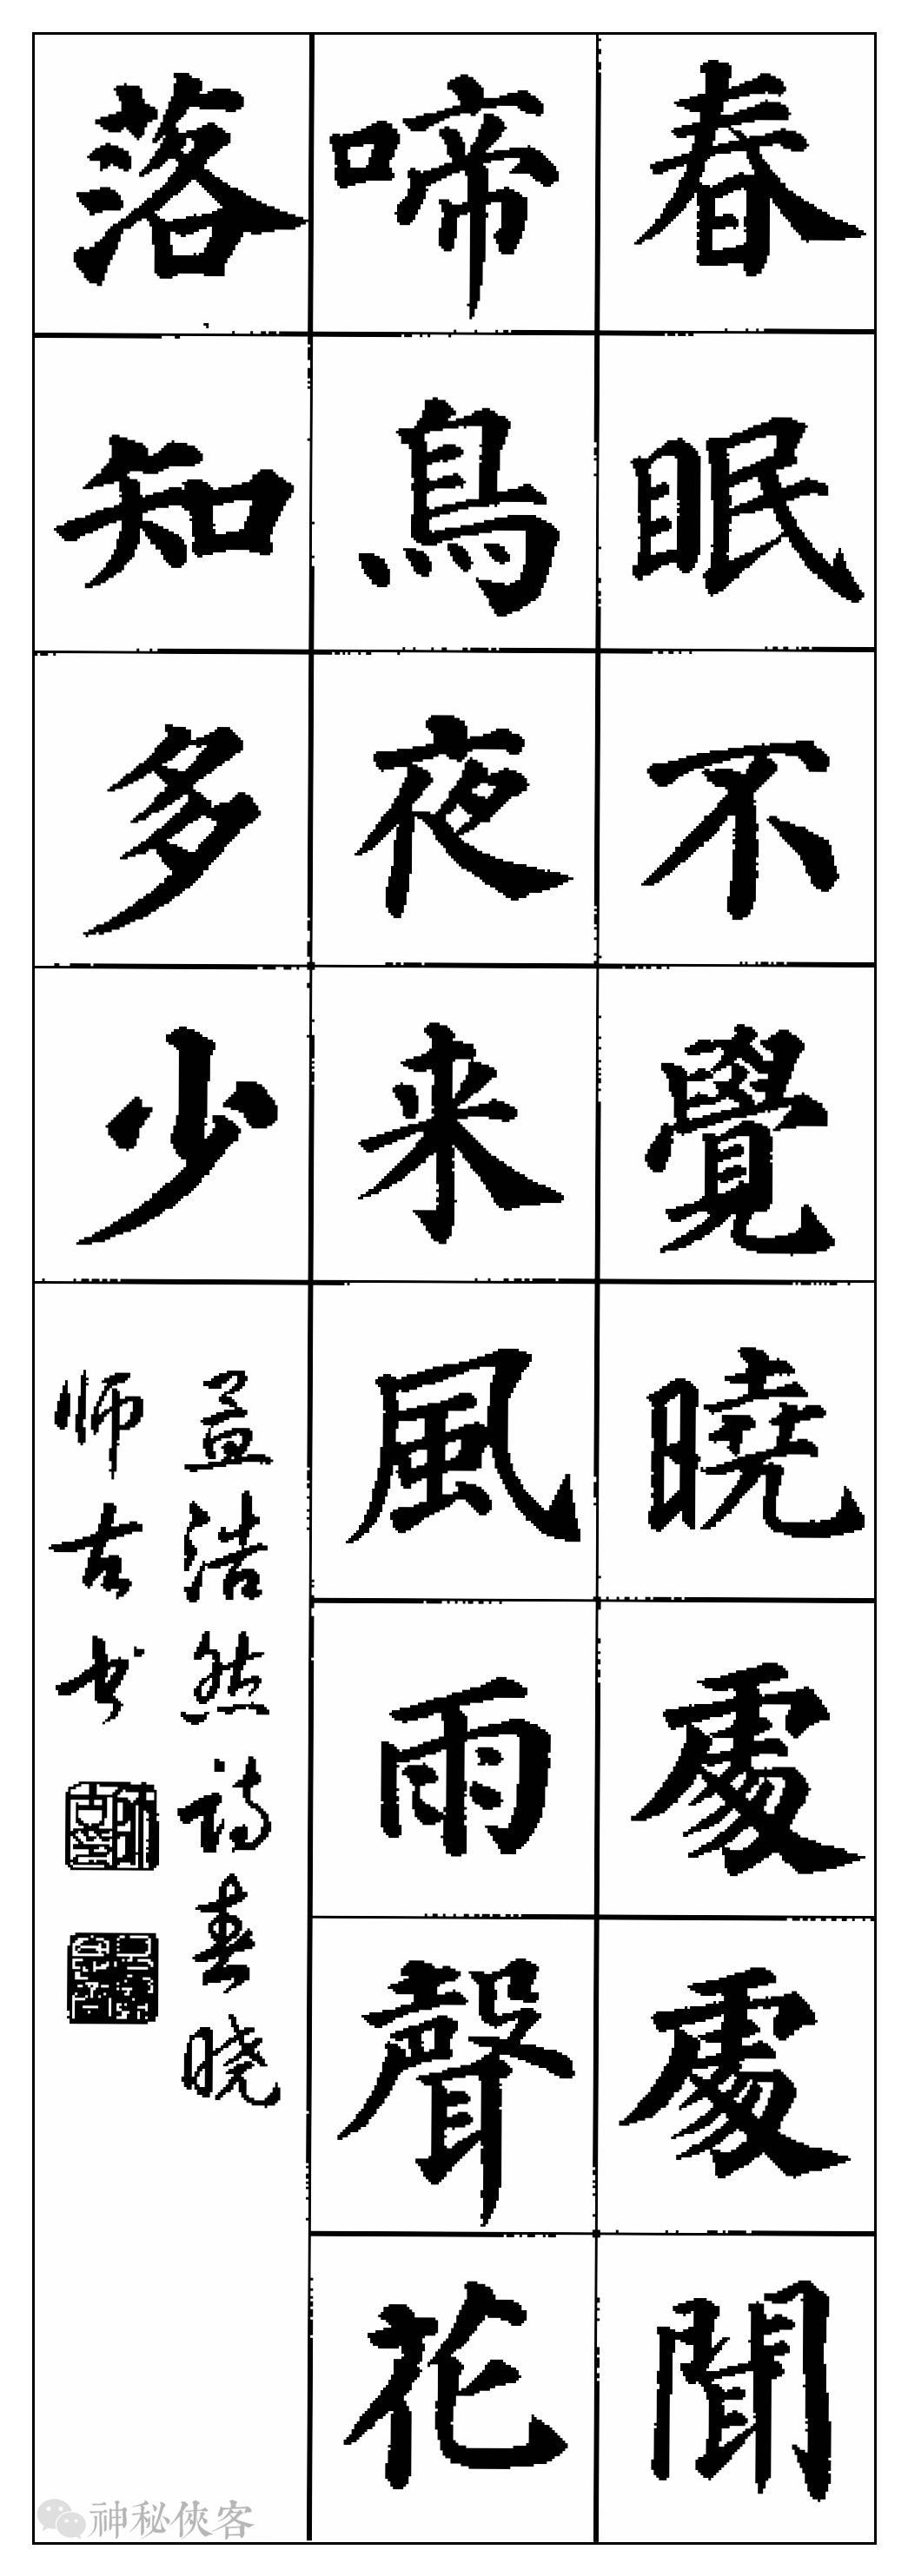 春眠不覺曉處處聞
啼鳥夜来風雨聲花
落知多少
孟浩然诗春晓
师古书
神秘俠客